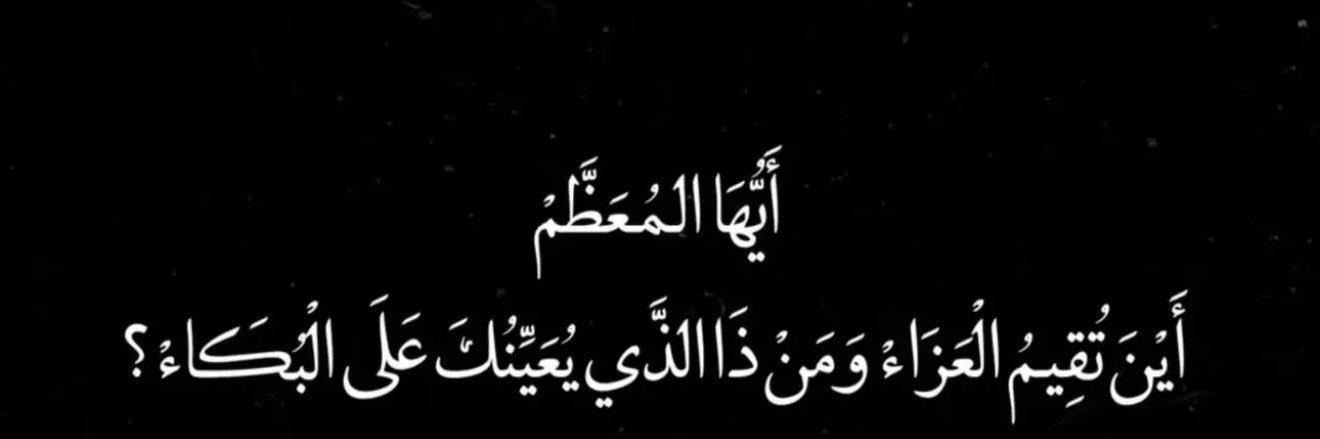 أَيُّهَا المُعَظَّمْ
أَيْنَ تُقِيمُ الْعَزَاءْ وَمَنْ ذَا الذَّي يُعَيِّنُكَ عَلَى الْبُكَاءْ؟